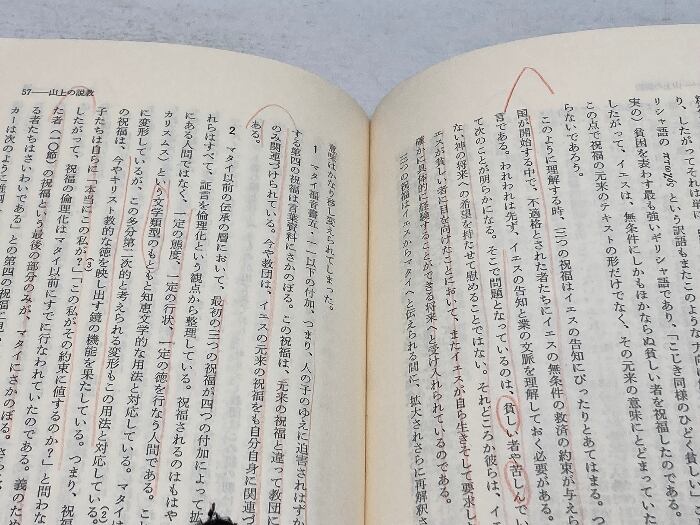 り、したがって、それは単
リシャ語の πτωχός という訳語もまたこのような方
実の）貧困を表わす最も強いギリシャ語であり、「こじき同様のひどく貧しい
したがって、イエスは、無条件にしかもほかならぬ貧しい者を祝福したのである。
この点で祝福の元来のテキストの形だけでなく、その元来の意味にとどまってい
らないであろう。
このように理解する時、三つの祝福はイエスの告知にぴったりとあてはまる。
国が開始する中で、不適格とされた者たちにイエスの無条件の救済の約束が与えら
言である。われわれは先ず、イエスの告知と業の文脈を理解しておく必要がある。
て次のことが明らかになる。そこで問題となっているのは、貧しい者や苦しんでい
ない神の将来への希望を持たせて慰めることではない。それどころか彼らは、イエ
エスが貧しい者に目を向けたことにおいて、またイエスが自ら生きそして要求し
確かに具体的に経験することができる将来へと受け入れられているのである。
三つの祝福はイエスからマタイへと伝えられる間に、拡大されさらに再解釈さ
57——山上の説教
意味はかなり移し変えられてしまった。
1 マタイ福音書五・一一以下の付加、つまり、人の子のゆえに迫害されはずか
する第四の祝福は言葉資料にさかのぼる。この祝福は、元来の祝福と違って教団に
のみ関連づけられている。今や教団は、イエスの元来の祝福をも自分自身に関連づ
ある。
2 マタイ以前の伝承の層において、最初の三つの祝福が四つの付加によって拡
れらはすべて、証言を倫理化という観点から整理している。祝福されるのはもはや
にある人間ではなく、一定の態度、一定の行状、一定の徳を行なう人間である。こ
カリスムス）という文学類型のもともと知恵文学的な用法と対応している。マタイ
に変形しているが、この多分第二次的と考えられる変形もこの用法と対応している。(2)
の祝福は、今やキリスト教的な徳を映し出す鏡の機能を果たしている。つまり、祝福
子たちは自らに「本当にこの私が？」(3)「この私がその約束に値するのか？」と問わな
したがって、祝福の倫理化はマタイ以前にすでに行なわれていたのである。義のため
た者（一〇節）の祝福という最後の部分のみが、マタイにさかのぼる。
る者たちはさいわいである」との第四の祝福に
カーは次のように